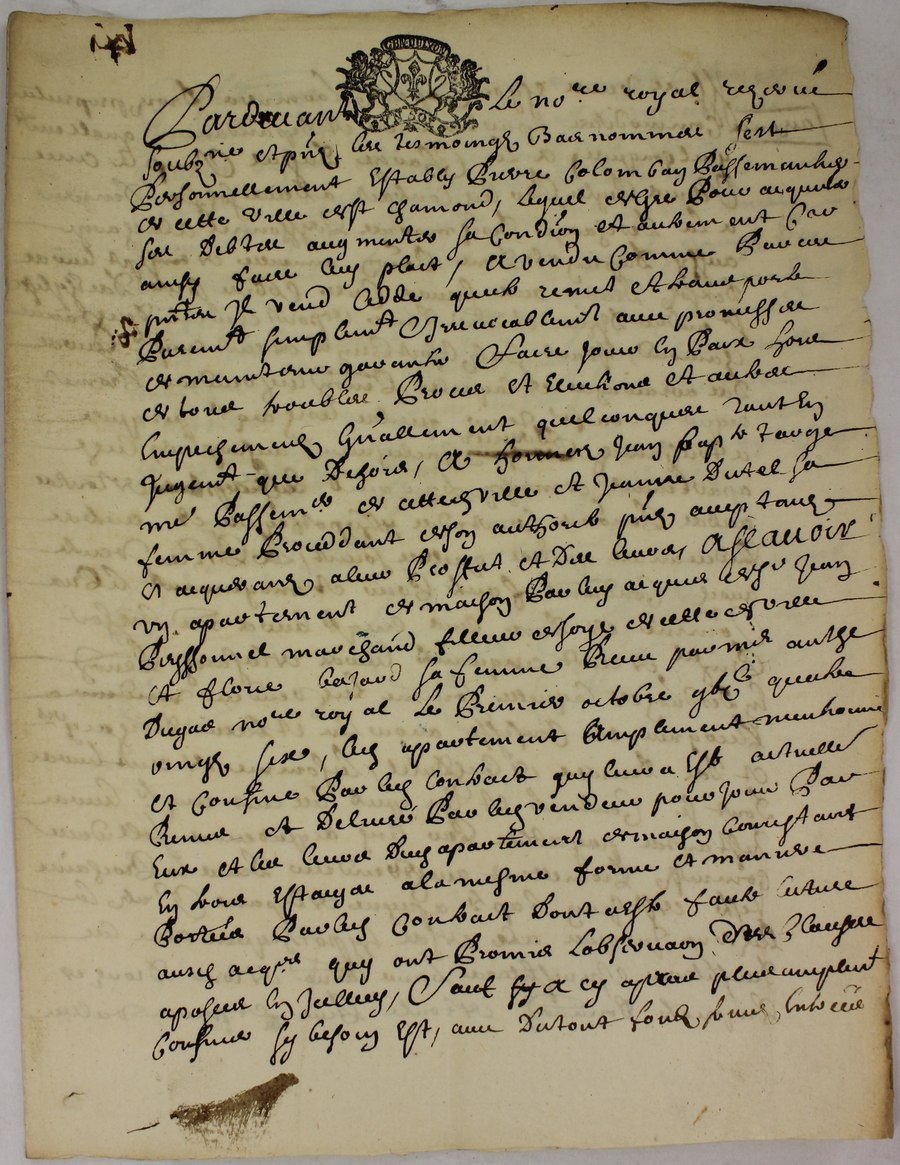 GEN. DE LYON
Pardevant Le no.re royal reservé
soubz.né et pñs les tesmoingz bas nommés sest
Personnellement estably Pierre Colomban Passemantier
de cette ville de st chamond, lequel de gre Pour acquiter
ses Debtes augmenter sa Condi͠on et autrem ent Car
ainsy faire luy plait, A vendu Comme Par ces
pñtes Il vend cedde quitte remet et transporte
Purem.t simplem.t Irrevocablem.t avec promesse
de maintenir garantir faire jouir en Paix hors
de tous troubles Proces et evictions et autres
Empechemens Gñallement quelconques Tant En
Jugem.t que Dehors, A Jean bap.te
me Passem.er de cette ville et Jeanne Dutel sa
femme Proceddant de son authorité pñs acceptans
et acquerans a leur Proffit et Des leurs, Asçavoir
un apartement de maison Par luy acquis de sr Jean
Peyssonnel marchand filleur de soye de cette ville
et flore sa femme receu par me
Dugas no.re royal Le Premier octobre quatre
vingt six, led apartement Amplement mentionné
et Confiné Par led Contract quy leur a Esté actuellem.t
Remis et Delivré Par led vendeur pour jouir Par
Eux et les leurs Dud apartement de maison Consistant
En trois Estages a la mesme forme et maniere
Portée Par led Contract Dont a esté faite lecture
ausd acqrs quy ont Promis Lobservaon Des Clauses
aposées En Jcelluy, Sauf A cy apres plus amplem.t
Confiner sy besoin Est, avec Du tout fonds